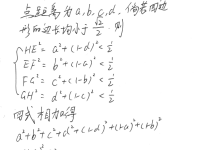 点距离为a,b,c,d.倘若四边
形的边长均小于√2/2 则
HE²=a²+(1-d)²<1/2
EF²=b²+(1-a)²<1/2
FG²=c²+(1-b)²<1/2
GH²=d²+(1-c)²<1/2
四式相加得
a²+b²+c²+d²+(1-d)²+(1-a)²+(1-b)²